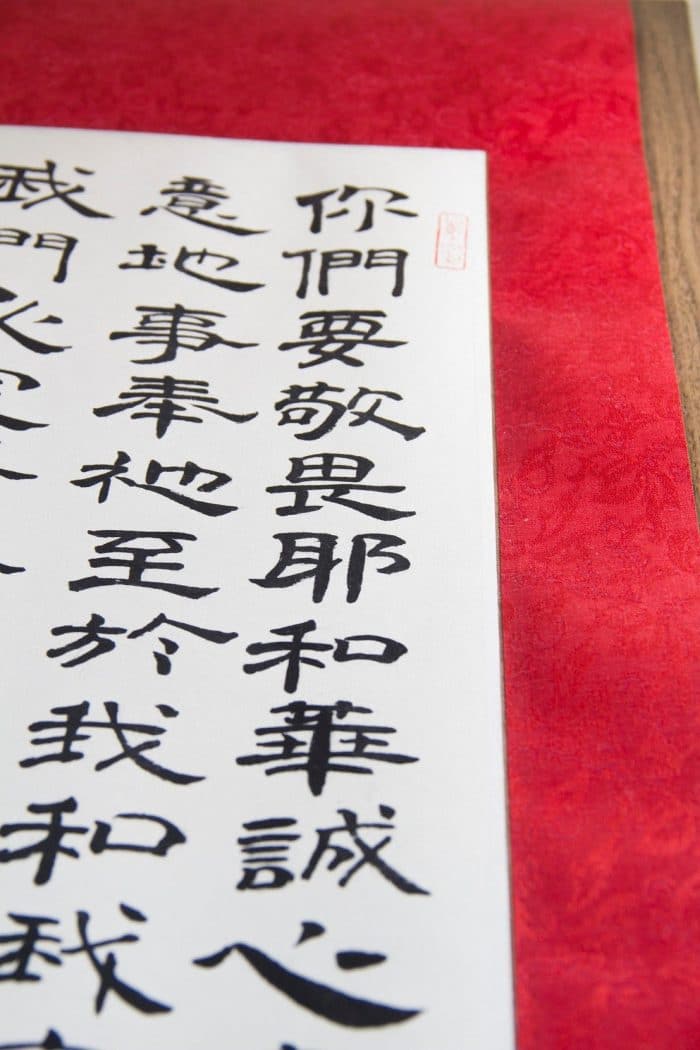 你們要敬畏耶和華誠心
意地事奉祂至於我和我
我們